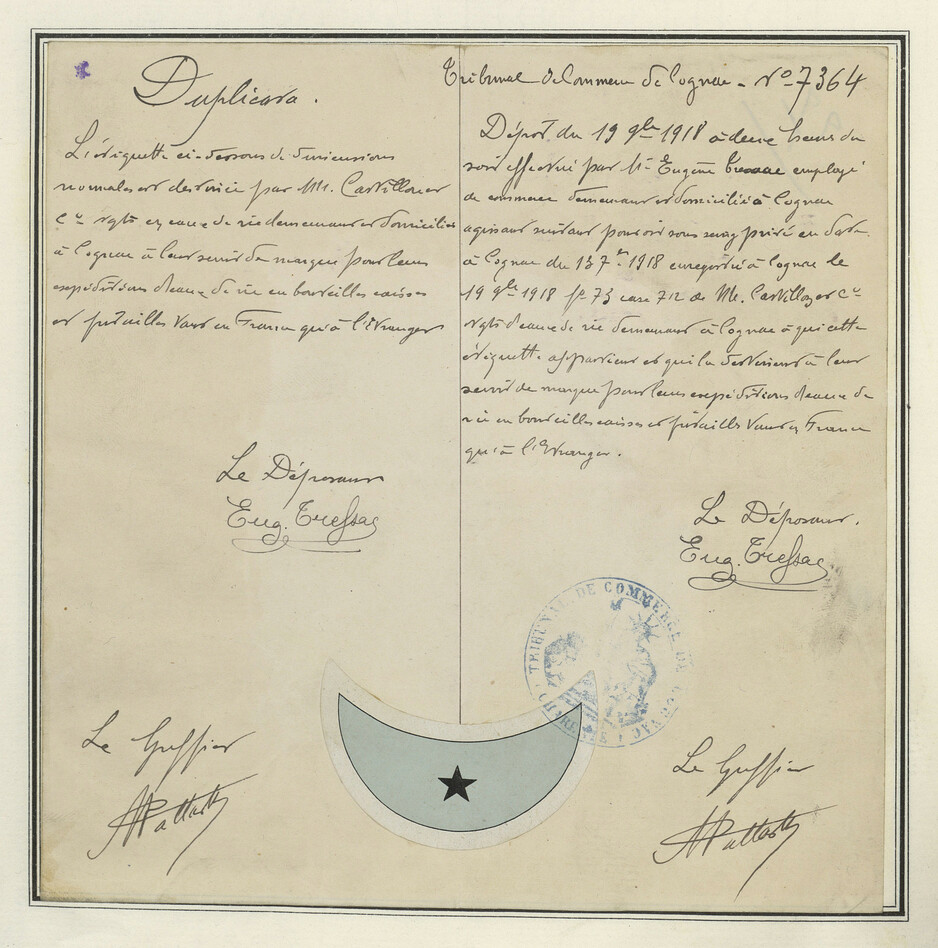 Duplicata.
L'étiquette ci-dessous de dimensions
normales est destinée par MM. Castillon et
Cie négts en eaux de vie demeurant et domiciliés
à Cognac à leur servir de marque pour leurs
expéditions d'eaux de vie en bouteilles caisses
et futailles tant en France qu'à l'Etranger
Le Déposant
Eug. Tressac
Le Greffier
Tribunal de Commerce de Cognac - No 7364
Dépôt du 19 9bre 1918 à deux heures du
soir effectué par Mr Eugène employé
de commerce demeurant et domicilié à Cognac
agissant suivant pouvoir sous seing privé en date
à Cognac du 13 7bre 1918 enregistré à Cognac le
19 9bre 1918 fo 73 case 712 de MM. Castillon et Cie
négts d'eaux de vie demeurant à Cognac à qui cette
étiquette appartient et qui la destinent à leur
servir de marque pour leurs expéditions d'eaux de
vie en bouteilles caisses et futailles tant en France
qu'à l'Etranger.
Le Déposant.
Eug. Tressac
TRIBUNAL DE COMMERCE DE COGNAC
CHARENTE
Le Greffier